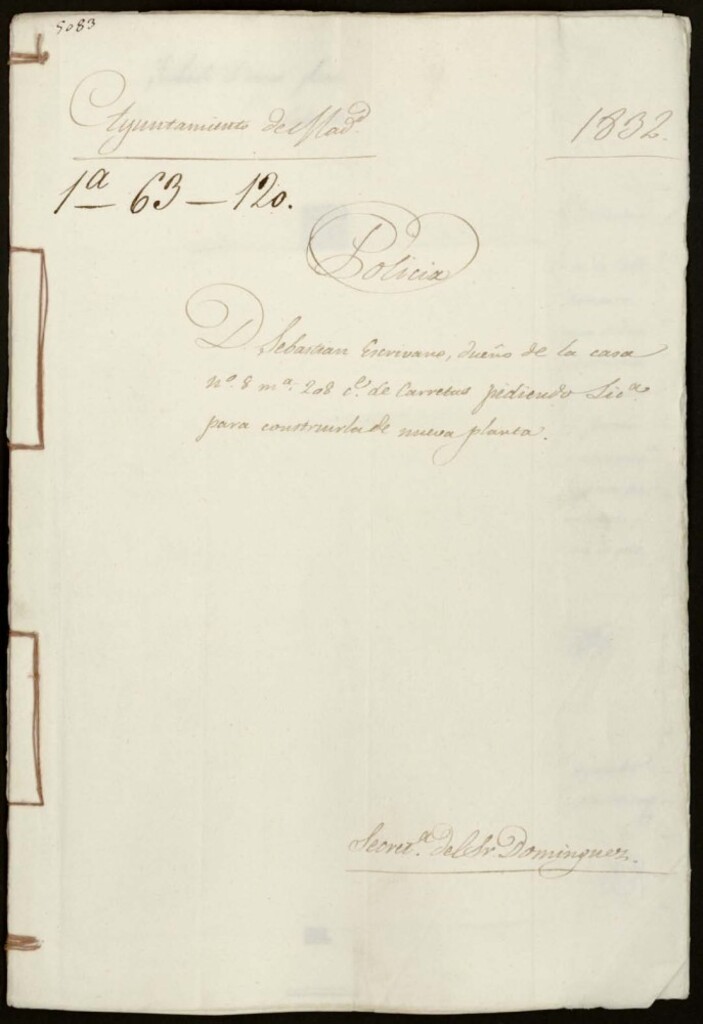 5083
Ayuntamiento de Mad.d
1832.
1a 63 - 120.
Policia
D. Sebastian Escrivano, dueño de la casa
n.º 8 m.a 208 c.e de Carretas pidiendo Lic.a
para construirla de nueva planta.
Secret.a del Sr. Dominguez.